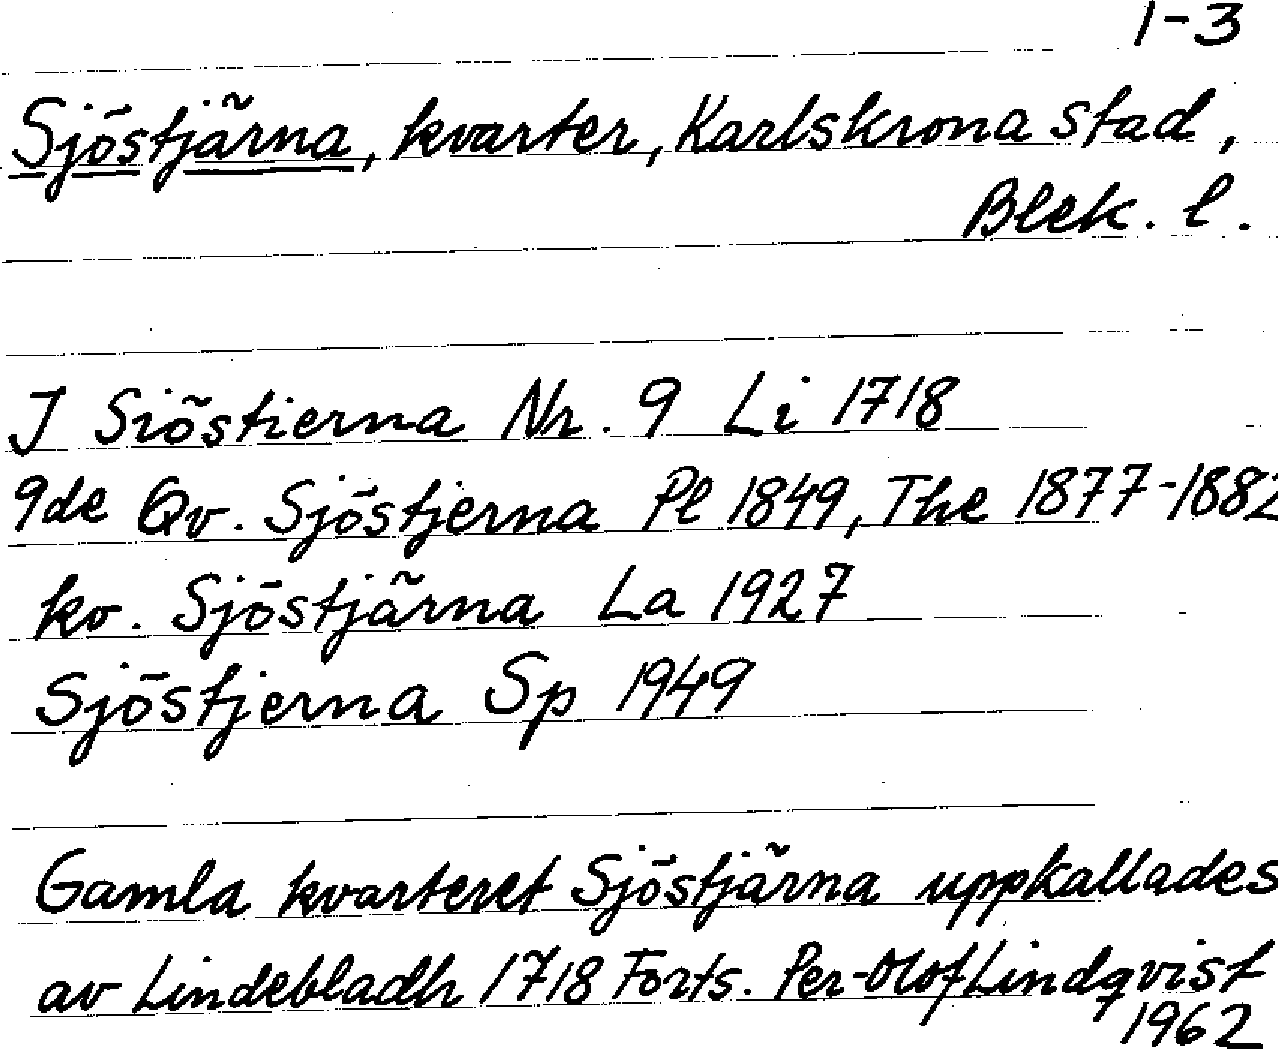 1-3
Sjöstjärna, kvarter, Karlskrona stad,
Blek. l.
J Siöstierna Nr. 9 Li 1718
9de Qv. Sjöstjerna Pl 1849, The 1877-1882
kv. Sjöstjärna La 1927
Sjöstjerna Sp 1949
Gamla kvarteret Sjöstjärna uppkallades
av Lindebladh 1718 Forts. Per-Olof Lindqvist
1962